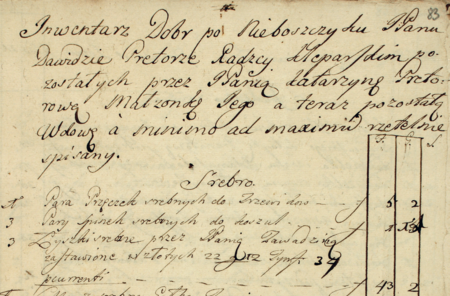 83
Inwentarz Dobr po Nieboszczyku Panu
Dawidzie Pretorze Radzcy Kleparskim po
zostałych przez Panią Katarzynę Preto
rową Małzonkę Jego a teraz pozostałą
Wdowę à minimo ad maximum rzetelnie
spisany.
Srebro.
1 Para Przęczek srebnych do Trzewików 5 2
3 Pary spinek srebrnych do koszul 1
3 Łyszki srebrne przez Panią Zawadzką
zastawione w złotych 22 gr 12 Tynf: 39
43 2